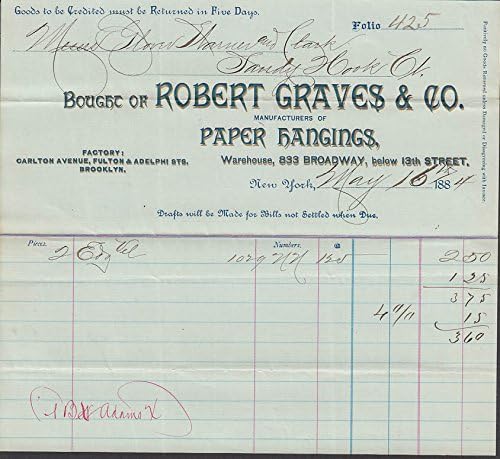 Goods to be Credited must be Returned in Five Days.
Folio 425
Glover Warner and Clark
Sandy Hook Ct.
BOUGHT OF ROBERT GRAVES & CO.
MANUFACTURERS OF
PAPER HANGINGS,
FACTORY:
CARLTON AVENUE, FULTON & ADELPHI STS.
BROOKLYN.
Warehouse, 833 BROADWAY, below 13th STREET,
New York, May 16th 1884
Drafts will be Made for Bills not Settled when Due.
Positively no Goods Returned unless Damaged or Disagreeing with Invoice.
Pieces. Numbers. @
2 1029 125 250
125
375
4 15
360
Adams X